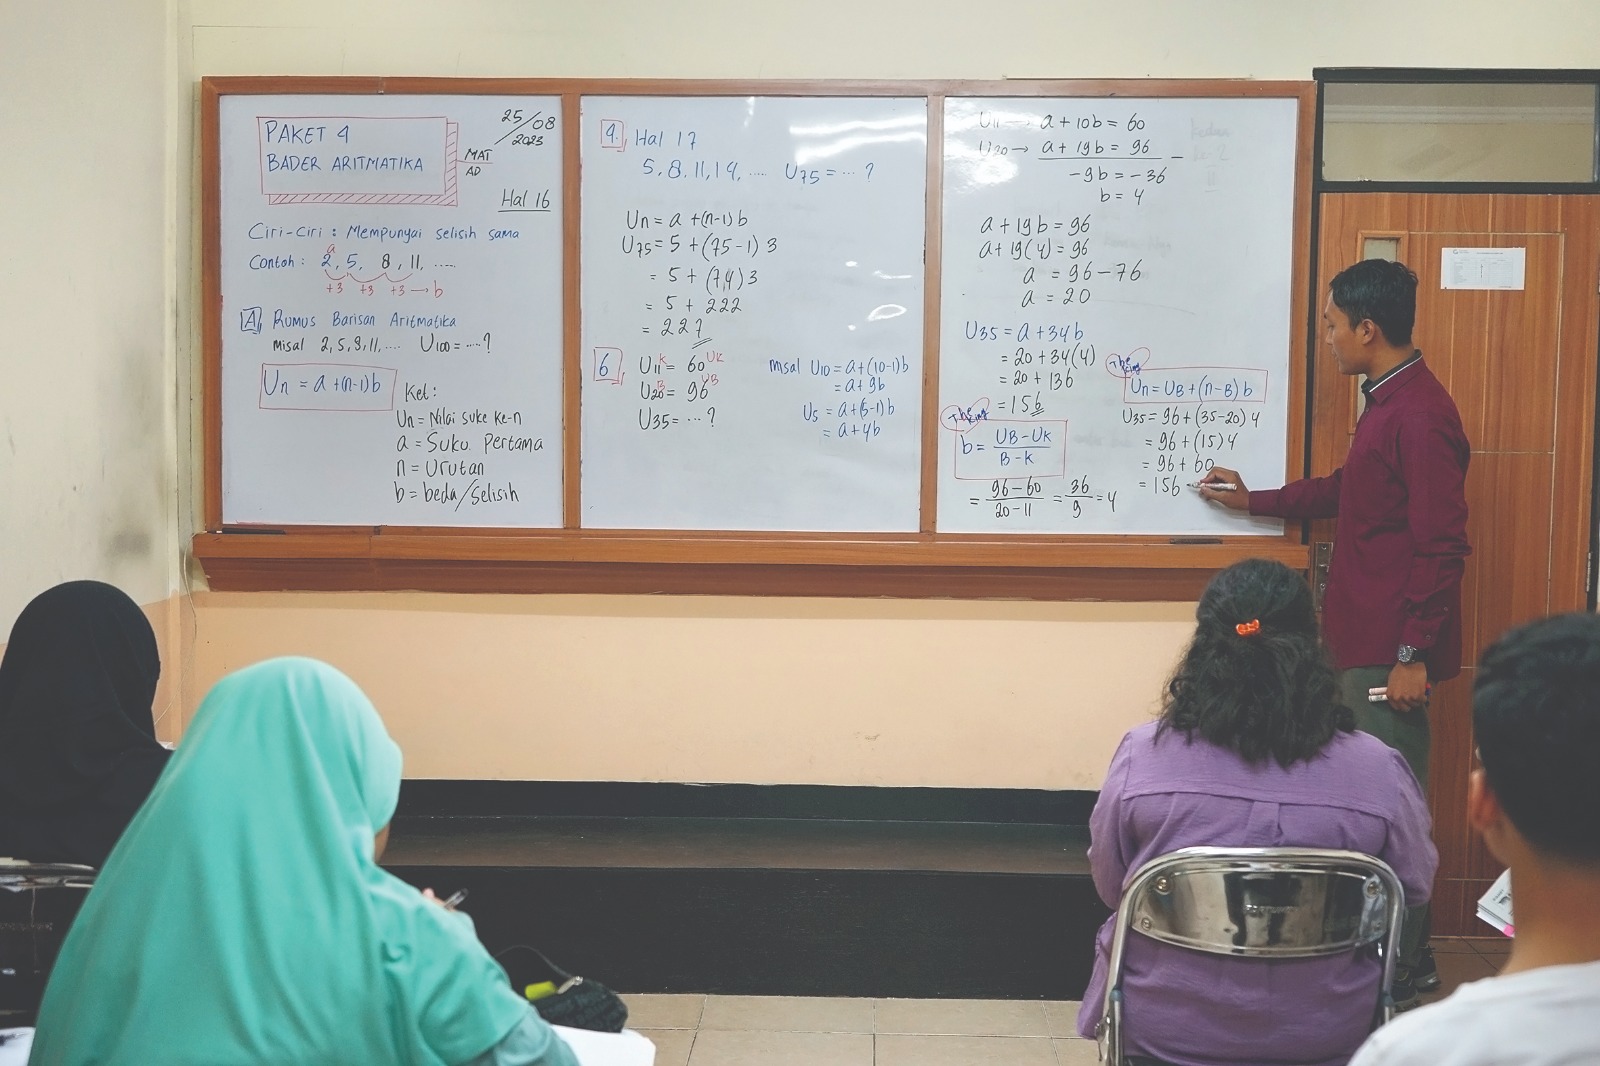 PAKET 4
BADER ARITMATIKA
25/08
2023
MAT
AD
Hal 16
Ciri-Ciri : Mempunyai selisih sama
a
Contoh : 2, 5, 8, 11, .....
+3 +3 +3 → b
A, Rumus Barisan Aritmatika
Misal 2, 5, 8, 11, .... U100 = ....?
Un = a + (n-1) b
Ket :
Un = Nilai suke ke-n
a = Suku pertama
n = Urutan
b = beda/Selisih
4. Hal 17
5, 8, 11, 14, .... U75 = ... ?
Un = a + (n-1) b
U75 = 5 + (75-1) 3
= 5 + (74) 3
= 5 + 222
= 227
6, U11 = 60
K UK
U20 = 96
B UB
U35 = ... ?
Misal U10 = a + (10-1) b
= a + 9b
U5 = a + (5-1) b
= a + 4b
U11 → a + 10b = 60
U20 → a + 19b = 96 −
-9b = -36
b = 4
a + 19b = 96
a + 19(4) = 96
a = 96 - 76
a = 20
U35 = a + 34b
= 20 + 34(4)
= 20 + 136
= 156
The King
b = UB - UK
B - K
= 96 - 60 = 36 = 4
20 - 11 9
The King
Un = UB + (n-B) b
U35 = 96 + (35-20) 4
= 96 + (15) 4
= 96 + 60
= 156